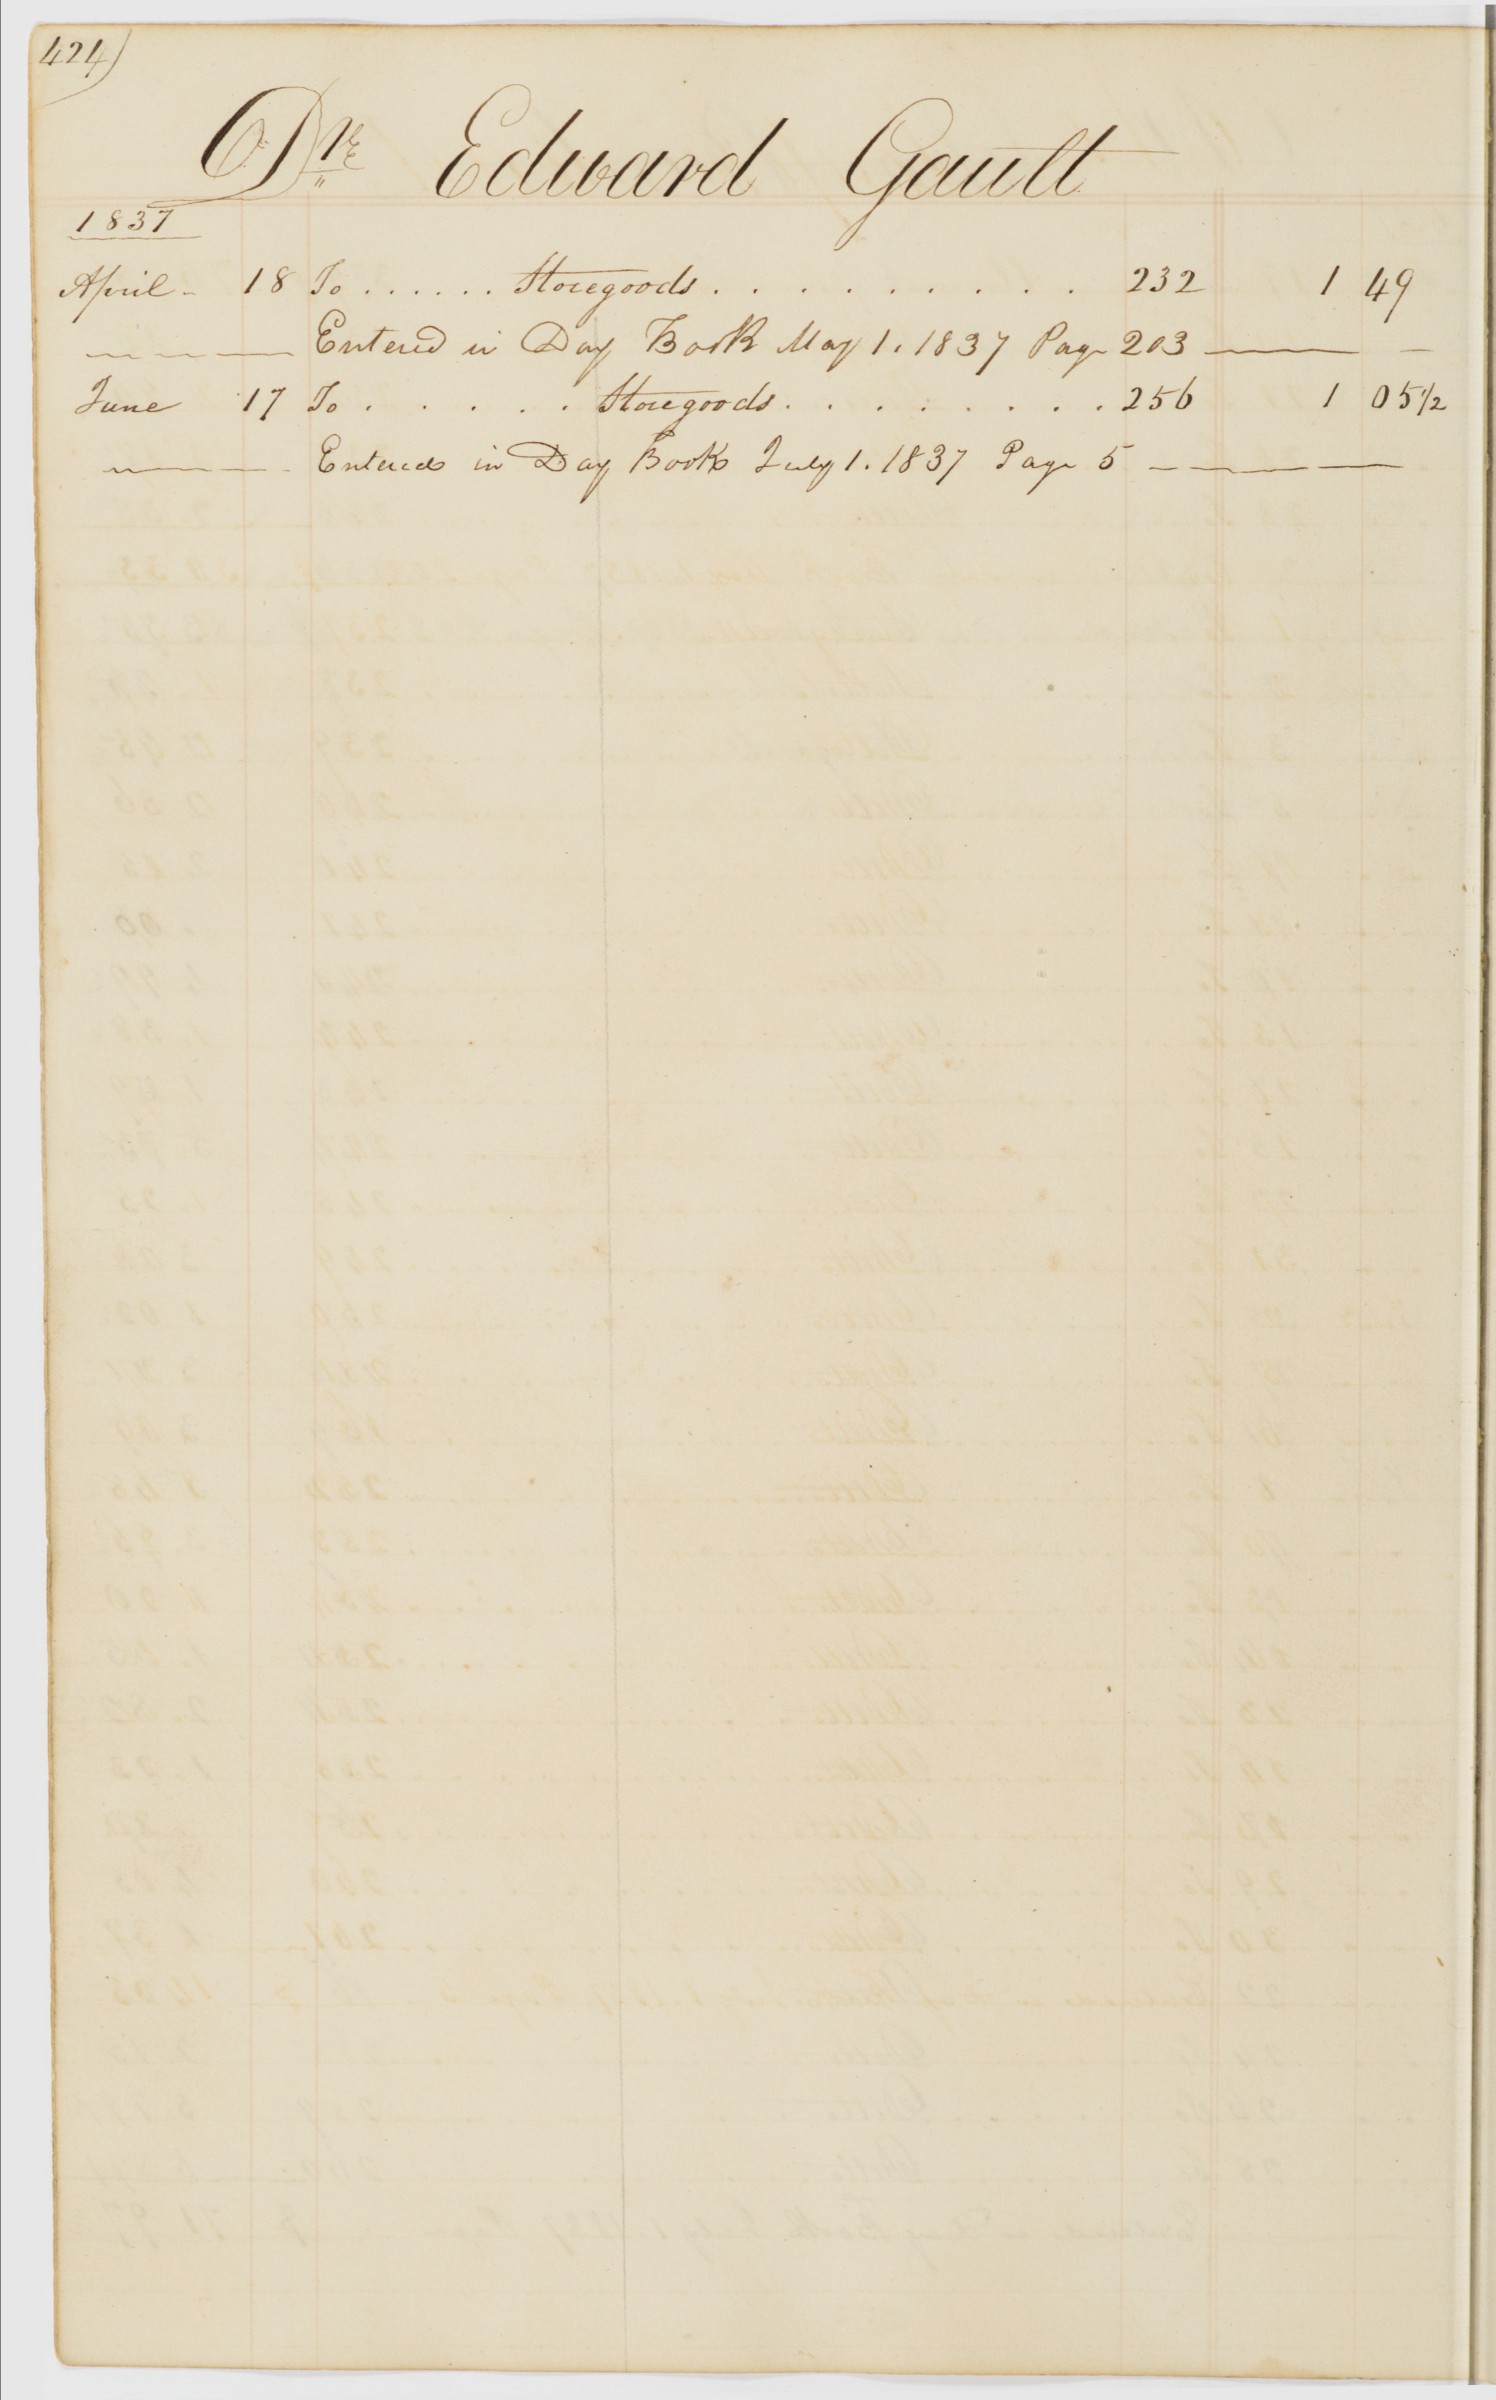 424)
Dr. Edward Gault
1837
April - 18 To . . . . . . Storegoods . . . . . . . . . 232 1 49
Entered in Day Book May 1. 1837 Page 203 —
June 17 To . . . . . Storegoods . . . . . . . . 256 1 05 1/2
Entered in Day Book July 1. 1837 Page 5 —